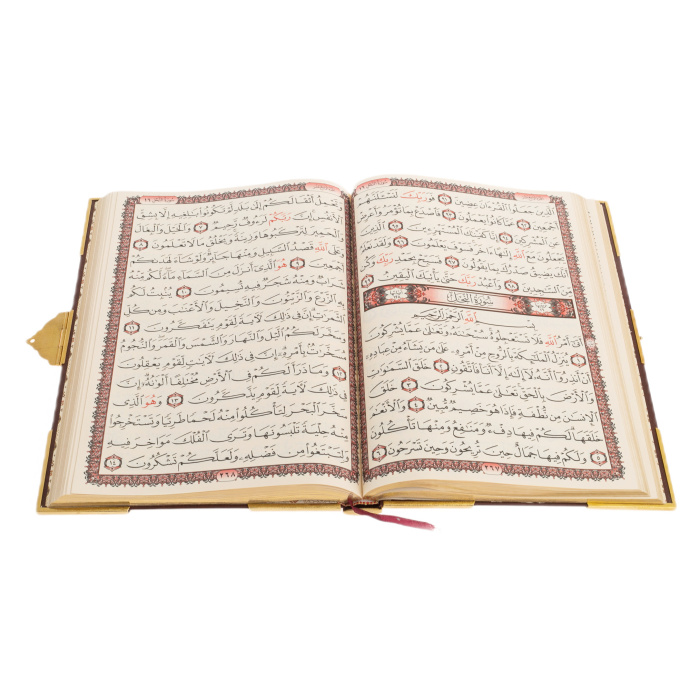 الَّذِينَ جَعَلُوا الْقُرْءَانَ عِضِينَ ٩١ فَوَرَبِّكَ لَنَسْـَٔلَنَّهُمْ
أَجْمَعِينَ ٩٢ عَمَّا كَانُوا يَعْمَلُونَ ٩٣ فَاصْدَعْ بِمَا تُؤْمَرُ وَأَعْرِضْ
عَنِ الْمُشْرِكِينَ ٩٤ إِنَّا كَفَيْنَاكَ الْمُسْتَهْزِءِينَ ٩٥ الَّذِينَ يَجْعَلُونَ
مَعَ اللَّهِ إِلَٰهًا ءَاخَرَ فَسَوْفَ يَعْلَمُونَ ٩٦ وَلَقَدْ نَعْلَمُ
أَنَّكَ يَضِيقُ صَدْرُكَ بِمَا يَقُولُونَ ٩٧ فَسَبِّحْ بِحَمْدِ رَبِّكَ وَكُنْ
مِنَ السَّاجِدِينَ ٩٨ وَاعْبُدْ رَبَّكَ حَتَّىٰ يَأْتِيَكَ الْيَقِينُ ٩٩
سُورَةُ النَّحْلِ
بِسْمِ اللَّهِ الرَّحْمَٰنِ الرَّحِيمِ
أَتَىٰ أَمْرُ اللَّهِ فَلَا تَسْتَعْجِلُوهُ سُبْحَانَهُ وَتَعَالَىٰ عَمَّا يُشْرِكُونَ
١ يُنَزِّلُ الْمَلَائِكَةَ بِالرُّوحِ مِنْ أَمْرِهِ عَلَىٰ مَنْ يَشَاءُ مِنْ عِبَادِهِ
أَنْ أَنْذِرُوا أَنَّهُ لَا إِلَٰهَ إِلَّا أَنَا فَاتَّقُونِ ٢ خَلَقَ السَّمَاوَاتِ
وَالْأَرْضَ بِالْحَقِّ تَعَالَىٰ عَمَّا يُشْرِكُونَ ٣ خَلَقَ
الْإِنْسَانَ مِنْ نُطْفَةٍ فَإِذَا هُوَ خَصِيمٌ مُبِينٌ ٤ وَالْأَنْعَامَ
خَلَقَهَا لَكُمْ فِيهَا دِفْءٌ وَمَنَافِعُ وَمِنْهَا تَأْكُلُونَ
٥ وَلَكُمْ فِيهَا جَمَالٌ حِينَ تُرِيحُونَ وَحِينَ تَسْرَحُونَ ٦
٢٦٧
وَتَحْمِلُ أَثْقَالَكُمْ إِلَىٰ بَلَدٍ لَمْ تَكُونُوا بَالِغِيهِ إِلَّا بِشِقِّ
الْأَنْفُسِ إِنَّ رَبَّكُمْ لَرَءُوفٌ رَحِيمٌ ٧ وَالْخَيْلَ وَالْبِغَالَ
وَالْحَمِيرَ لِتَرْكَبُوهَا وَزِينَةً وَيَخْلُقُ مَا لَا تَعْلَمُونَ ٨
وَعَلَى اللَّهِ قَصْدُ السَّبِيلِ وَمِنْهَا جَائِرٌ وَلَوْ شَاءَ لَهَدَاكُمْ
أَجْمَعِينَ ٩ هُوَ الَّذِي أَنْزَلَ مِنَ السَّمَاءِ مَاءً لَكُمْ مِنْهُ
شَرَابٌ وَمِنْهُ شَجَرٌ فِيهِ تُسِيمُونَ ١٠ يُنْبِتُ لَكُمْ
بِهِ الزَّرْعَ وَالزَّيْتُونَ وَالنَّخِيلَ وَالْأَعْنَابَ وَمِنْ كُلِّ
الثَّمَرَاتِ إِنَّ فِي ذَٰلِكَ لَآيَةً لِقَوْمٍ يَتَفَكَّرُونَ ١١
وَسَخَّرَ لَكُمُ اللَّيْلَ وَالنَّهَارَ وَالشَّمْسَ وَالْقَمَرَ وَالنُّجُومُ
مُسَخَّرَاتٌ بِأَمْرِهِ إِنَّ فِي ذَٰلِكَ لَآيَاتٍ لِقَوْمٍ يَعْقِلُونَ
١٢ وَمَا ذَرَأَ لَكُمْ فِي الْأَرْضِ مُخْتَلِفًا أَلْوَانُهُ إِنَّ
فِي ذَٰلِكَ لَآيَةً لِقَوْمٍ يَذَّكَّرُونَ ١٣ وَهُوَ الَّذِي
سَخَّرَ الْبَحْرَ لِتَأْكُلُوا مِنْهُ لَحْمًا طَرِيًّا وَتَسْتَخْرِجُوا
مِنْهُ حِلْيَةً تَلْبَسُونَهَا وَتَرَى الْفُلْكَ مَوَاخِرَ فِيهِ
وَلِتَبْتَغُوا مِنْ فَضْلِهِ وَلَعَلَّكُمْ تَشْكُرُونَ ١٤
٢٦٨